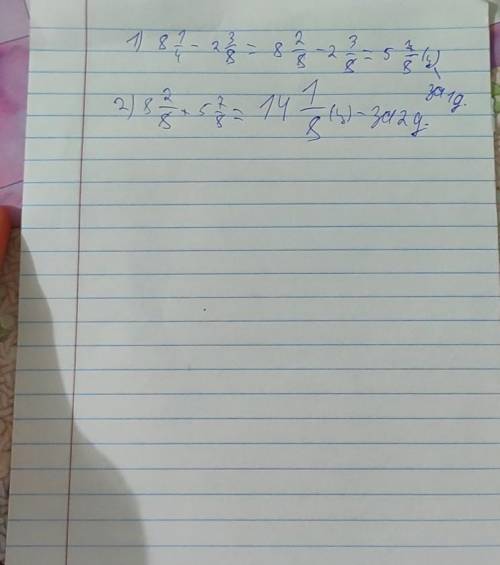 1) 8 1/4 - 2 3/8 = 8 2/8 - 2 3/8 = 5 7/8 (ц)
за 1 д.
2) 8 2/8 + 5 7/8 = 14 1/8 (ц) - за 2 д.